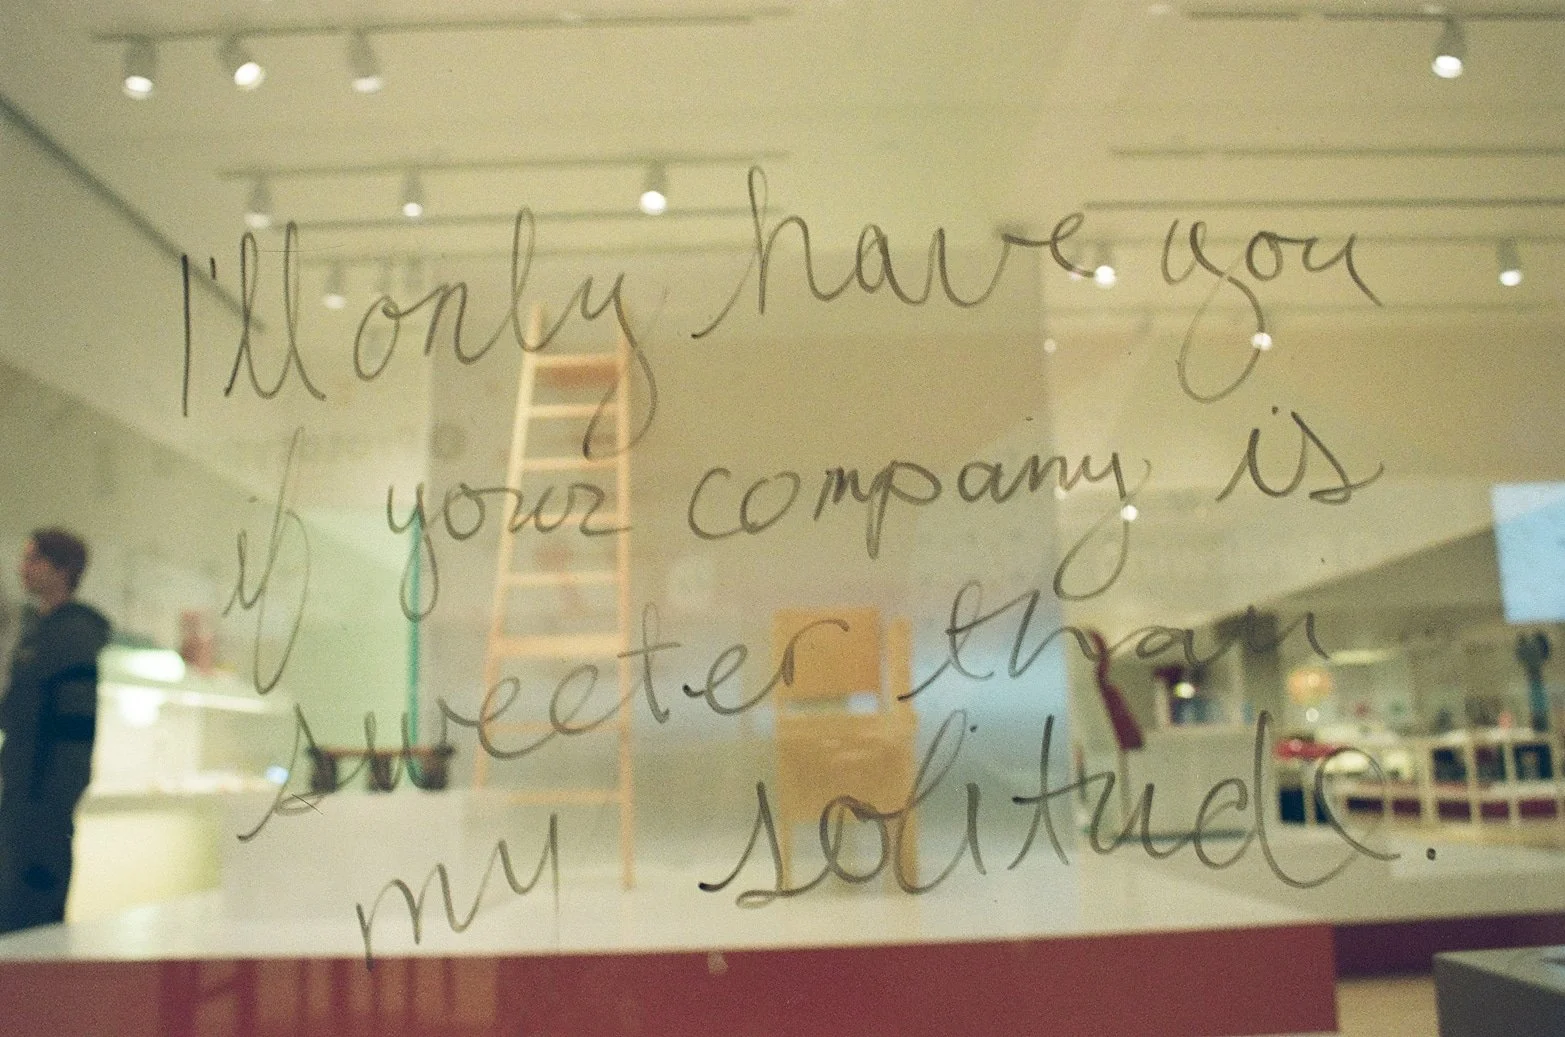 I'll only have you
if your company is
sweeter than
my solitude.